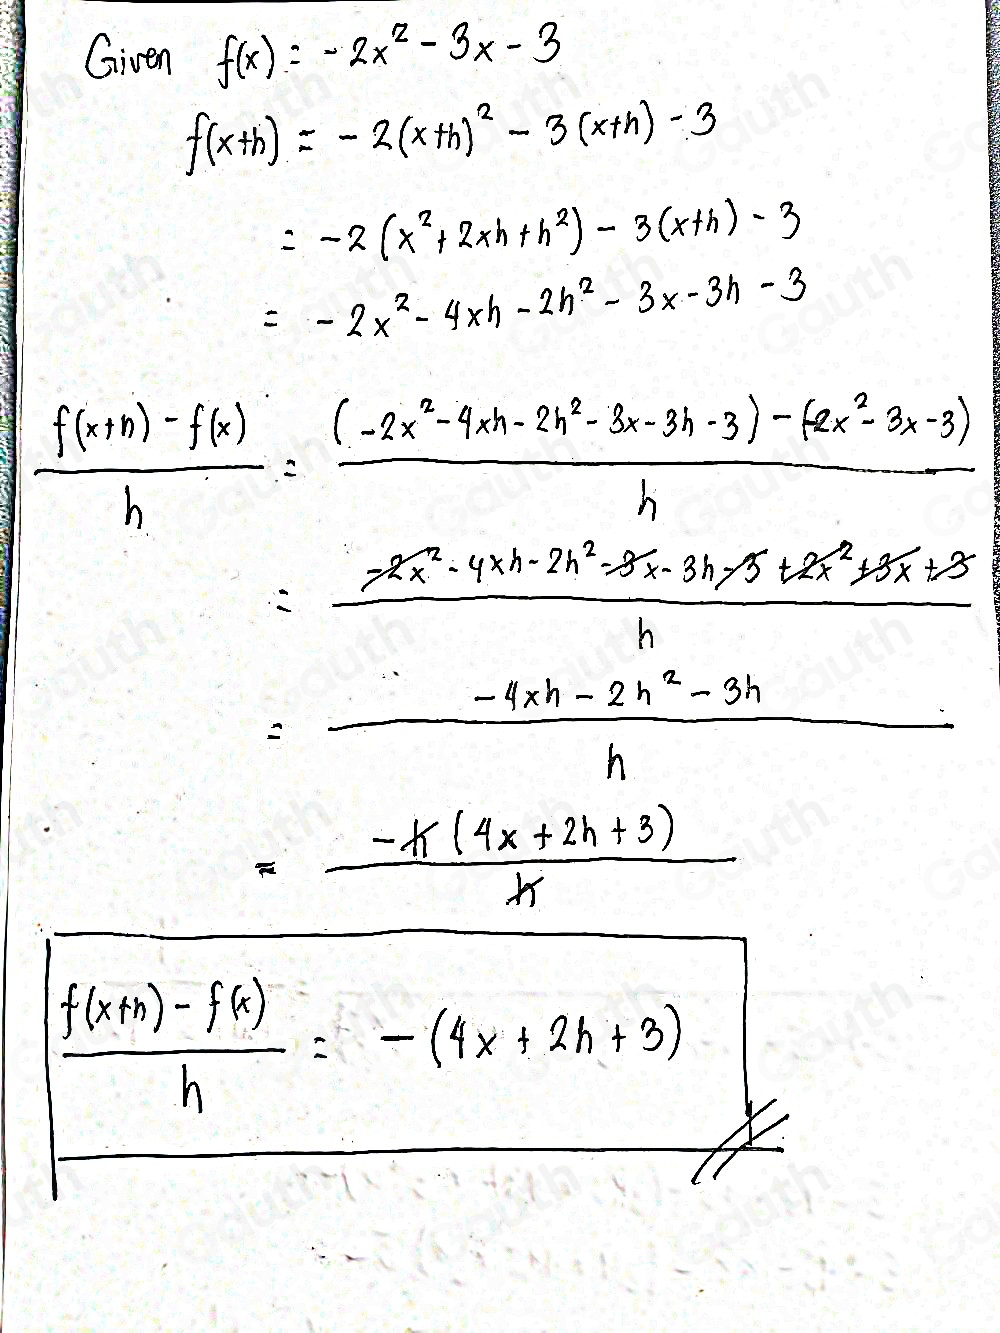 Given f(x) = -2x² - 3x - 3
f(x+h) = -2(x+h)² - 3(x+h) - 3
= -2(x² + 2xh + h²) - 3(x+h) - 3
= -2x² - 4xh - 2h² - 3x - 3h - 3
f(x+h) - f(x) / h = (-2x² - 4xh - 2h² - 3x - 3h - 3) - (-2x² - 3x - 3) / h
= -2x² - 4xh - 2h² - 3x - 3h - 3 + 2x² + 3x + 3 / h
= -4xh - 2h² - 3h / h
= -h(4x + 2h + 3) / h
f(x+h) - f(x) / h = -(4x + 2h + 3)